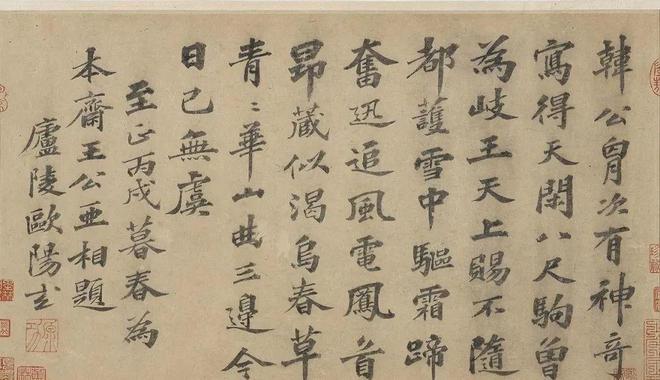 韓公胷次有神奇
寫得天閑八尺駒曽
為岐王天上賜不隨
都護雪中驅霜蹄
奮迅追風電鳳首
昂藏似渴烏春草
青〻華山曲三邊今
日已無虞
至正丙戌暮春為
本齋王公亞相題
廬陵歐陽玄